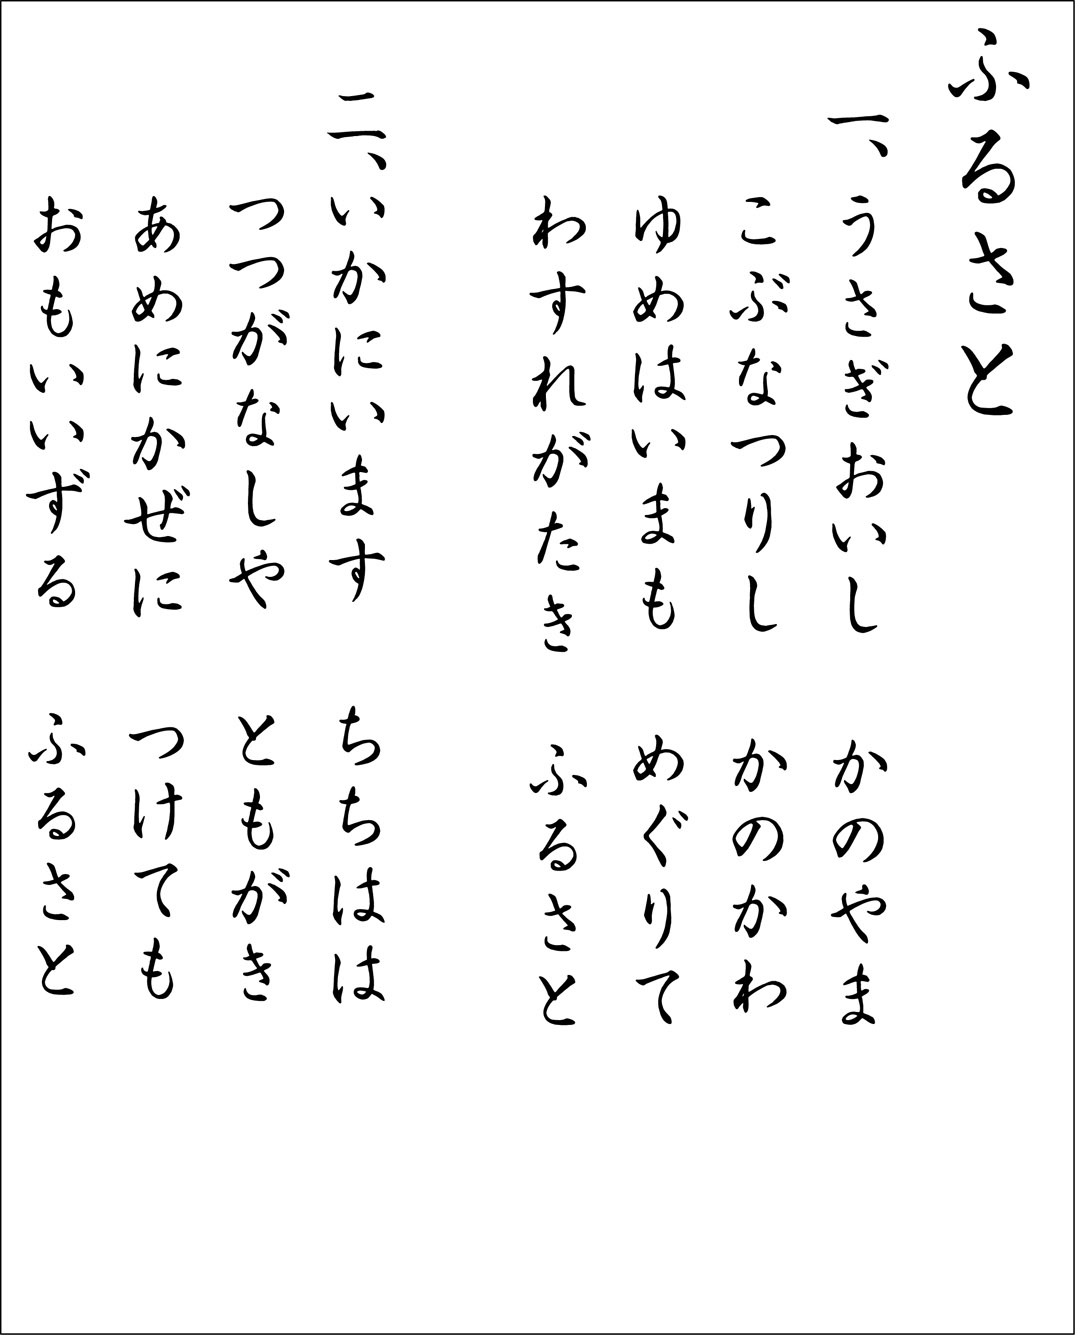 ふるさと
一、うさぎおいし　かのやま
こぶなつりし　かのかわ
ゆめはいまも　めぐりて
わすれがたき　ふるさと
二、いかにいます　ちちはは
つつがなしや　ともがき
あめにかぜに　つけても
おもいいずる　ふるさと